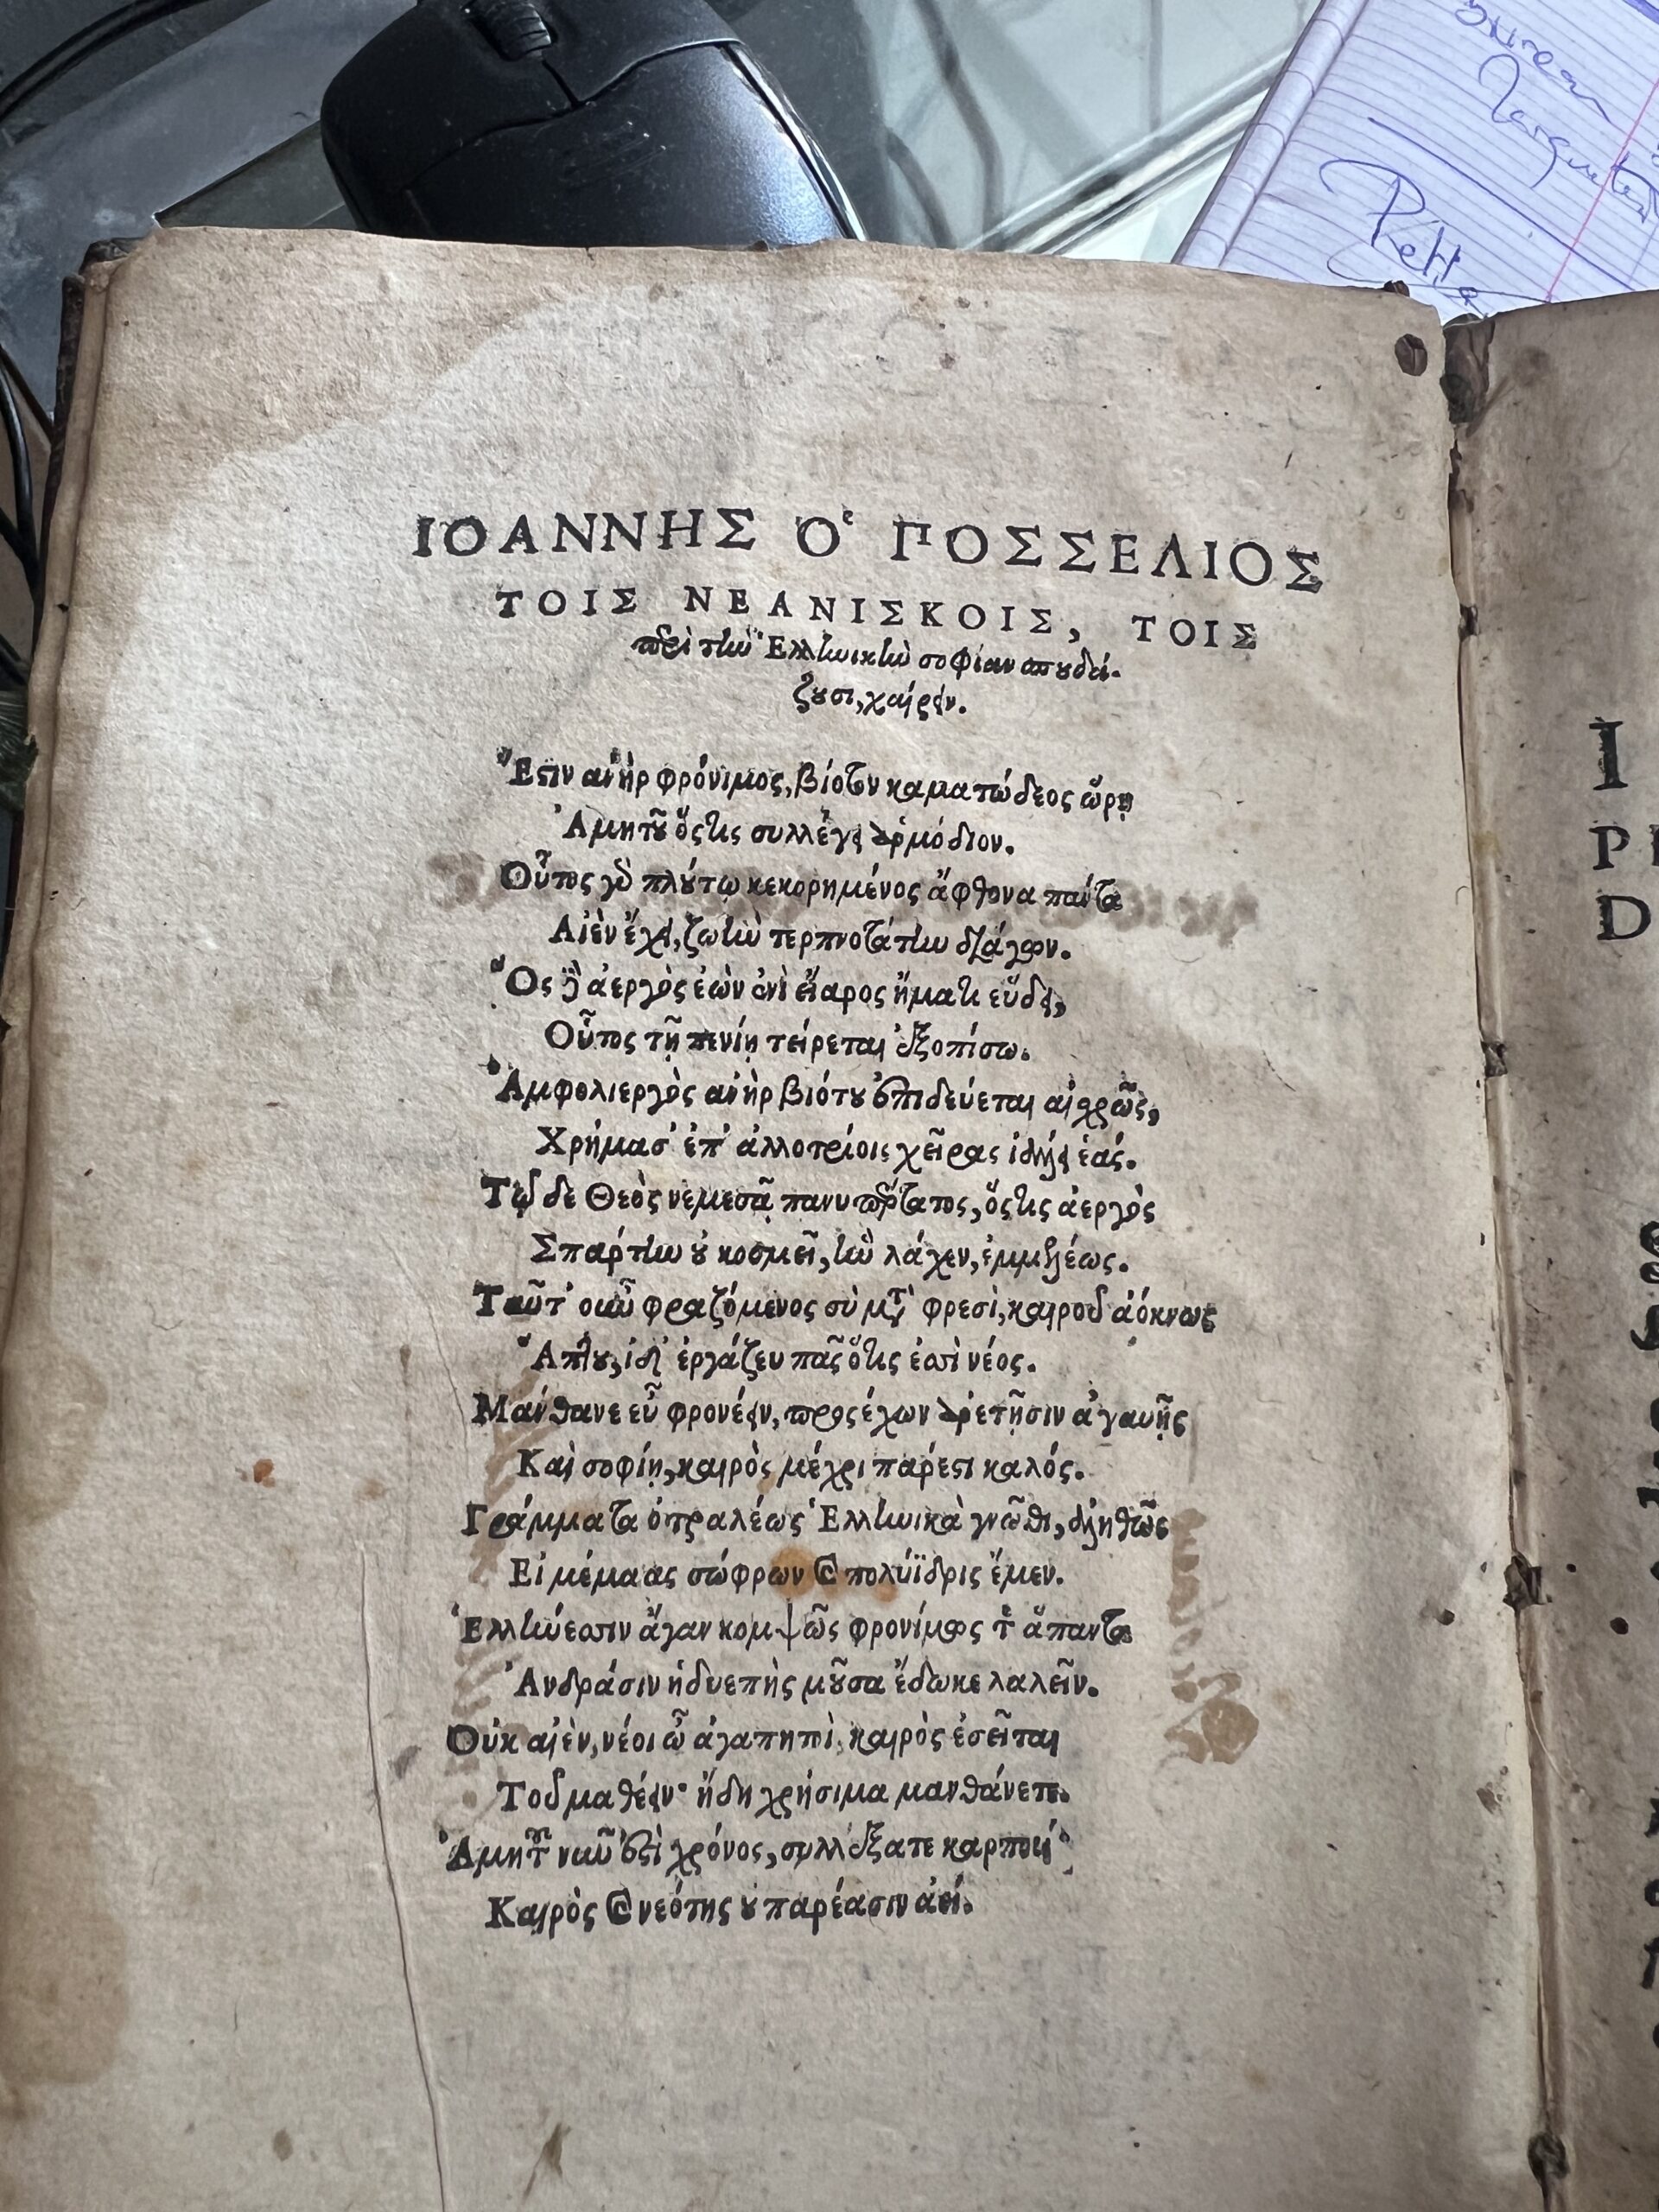 ΙΟΑΝΝΗΣ Ὁ ΠΟΣΣΕΛΙΟΣ
ΤΟΙΣ ΝΕΑΝΙΣΚΟΙΣ, ΤΟΙΣ
περὶ τὴν Ἑλληνικὴν σοφίαν σπουδά-
ζουσι, χαίρειν.
Ἔστιν ἀνὴρ φρόνιμος, βίοτον καματώδεος ὥρῃ
Ἀμητοῦ ὅςτις συλλέγει ἁρμόδιον.
Οὗτος γὸ πλούτῳ κεκορημένος ἄφθονα πάντα
Αἰὲν ἔχει, ζωὴν τερπνοτάτην διάγων.
Ὃς δὲ ἀεργὸς ἐὼν ἐνὶ εἴαρος ἤματι εὕδει,
Οὗτος τῇ πενίῃ τείρεται ἐξοπίσω.
Ἀμφολιεργὸς ἀνὴρ βιότου ἐπιδεύεται αἰχρῶς,
Χρήμασ' ἐπ' ἀλλοτρίοις χεῖρας ἰδὴλε ἑάς.
Τῷ δε Θεὸς νεμεσᾷ πανυπέρτατος, ὅςτις ἀεργὸς
Σπάρτην οὐ κοσμεῖ, ἣν λάχεν, ἐμμελέως.
Ταῦτ' οὖν φραζόμενος σὺ μετὰ φρεσὶ, καιροῦ ἀόκνως
Ἅπτου, ἰδ' ἐργάζευ πᾶς ὅτις ἐσσὶ νέος.
Μάνθανε εὖ φρονέειν, προςέχων ἀρετῇσιν ἀγαυῇς
Καὶ σοφίῃ, καιρὸς μέχρι πάρεστι καλός.
Γράμματα ὀτραλέως Ἑλληνικὰ γνῶθι, ἀληθῶς
Εἰ μέμαας σώφρων καὶ πολύϊδρις ἔμεν.
Ἑλλήνεσσιν ἄγαν κομψῶς φρονίμως τὲ ἅπαντα
Ἀνδράσιν ἡδυεπὴς μοῦσα ἔδωκε λαλεῖν.
Οὐκ αἰὲν, νέοι ὦ ἀγαπητοὶ, καιρὸς ἐσεῖται
Τοῦ μαθέειν· ἤδη χρήσιμα μανθάνετε.
Ἀμητοῦ νῦν ἐστὶ χρόνος, συλλέξατε καρπὸν
Καιρὸς καὶ νεότης οὐ παρέασιν ἀεί.
I
D